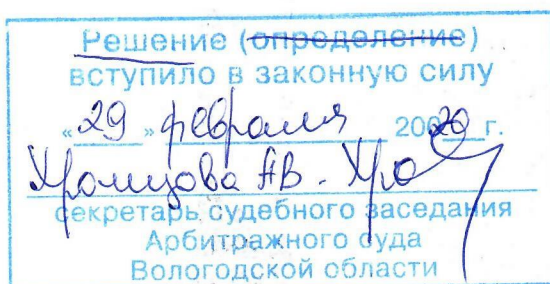 Решение (определение)
вступило в законную силу
«29» февраля 2020 г.
Хромцова АВ. Хро
секретарь судебного заседания
Арбитражного суда
Вологодской области